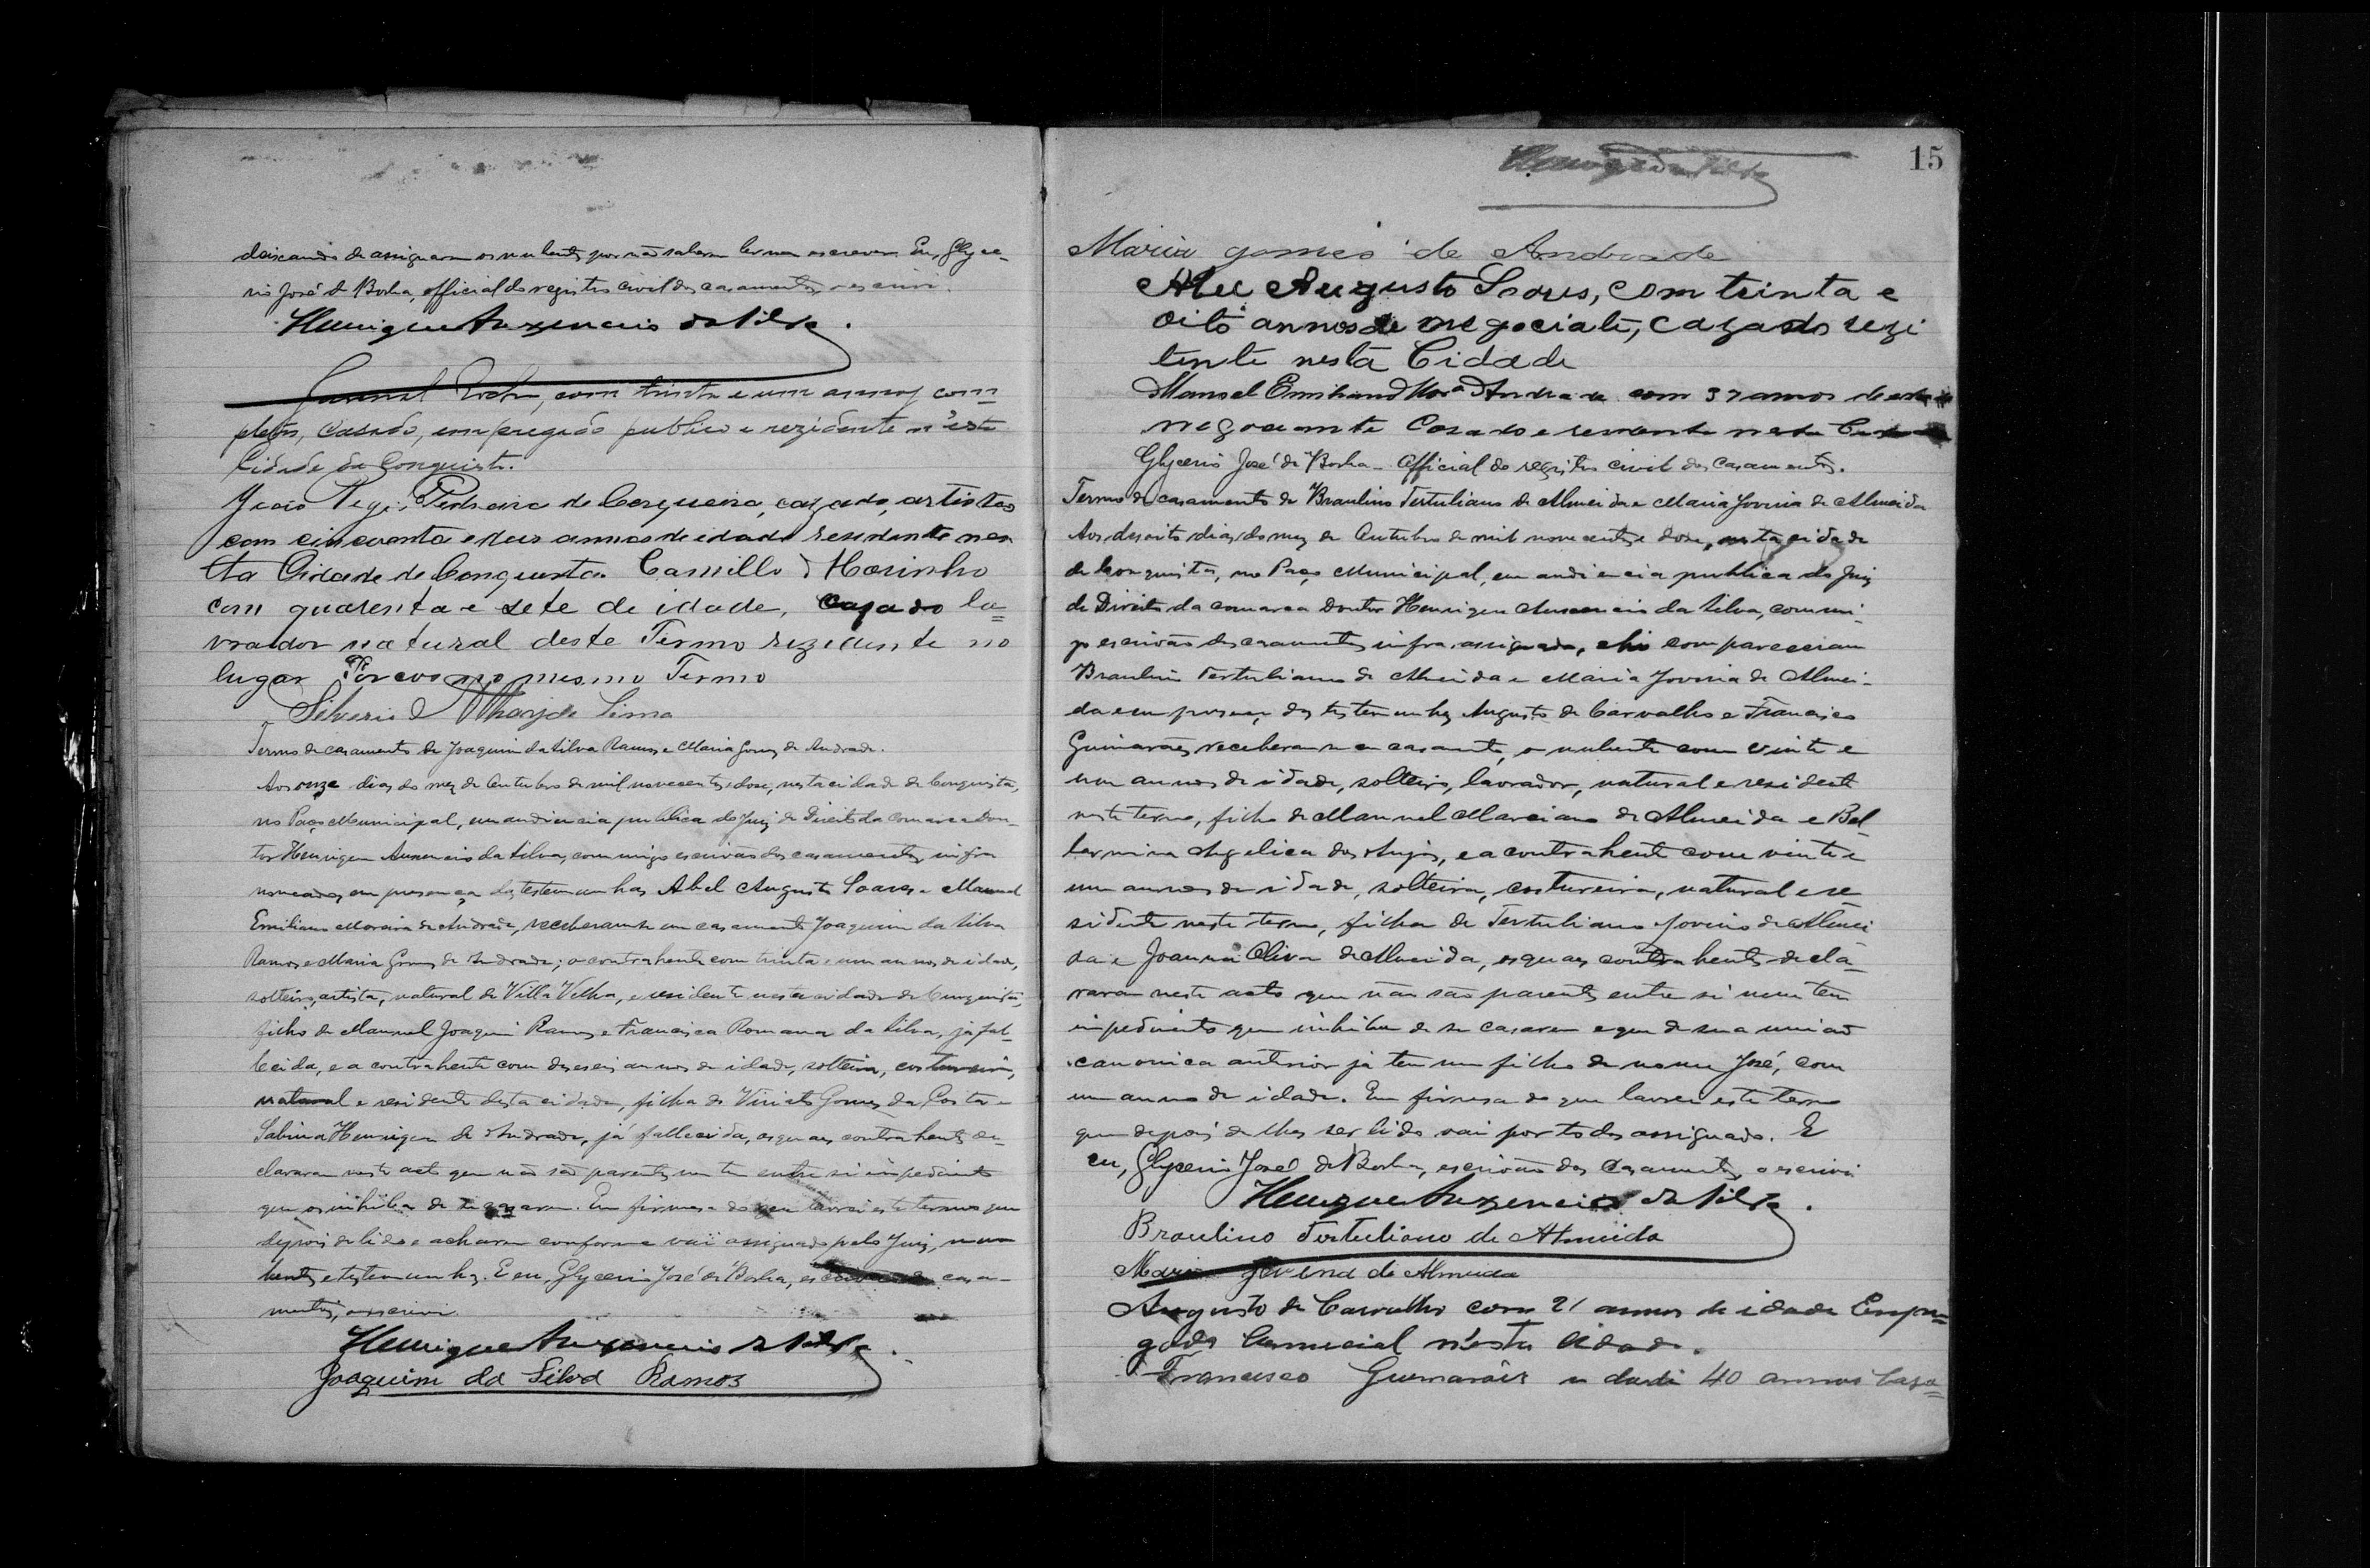 deixando de assignarem os nubentes por não saberem ler nem escrever. Eu, Glyce-
rio José da Borba, official do registro civil dos casamentos, o escrevi.
Henrique Auxencio da Silva.
Rocha, com trinta e um annos com-
pletos, casado, empregado publico e rezidente n'esta
Cidade da Conquista.
João Pedreira de Cerqueira, cazado, artista
com cincoenta e dous annos de idade residente nes
ta Cidade de Conquista. Camillo Marinho
com quarenta e sete de idade, cazado la=
vrador natural deste Termo rezidente no
lugar Porcos no mesmo Termo
Silverio Lima
Termo de casamento de Joaquim da Silva Ramos e Maria Gomes de Andrade.
Aos onze dias do mez de Outubro de mil novecentos e dose, nesta cidade de Conquista,
no Paço Municipal, em audiencia publica do Juiz de Direito da Comarca Dou-
tor Henrique Auxencio da Silva, commigo escrivão dos casamentos infra
nomeado, em presença das testemunhas Abel Augusto Soares e Manoel
Emiliano Moreira de Andrade, receberam-se em casamento Joaquim da Silva
Ramos e Maria Gomes de Andrade; o contrahente com trinta e um annos de idade,
solteiro, artista, natural de Villa Velha, e residente nesta cidade de Conquista,
filho de Manoel Joaquim Ramos e Francisca Romana da Silva, já fal-
lecida, e a contrahente com deseseis annos de idade, solteira, costureira,
natural e residente desta cidade, filha de Viriato Gomes da Costa e
Sabina Henrique de Andrade, já fallecida, os quaes contrahentes de-
clararam neste acto que não são parentes nem tem entre si impedimento
que os inhiba de se casarem. Em firmesa do que lavrei este termo que
depois de lido e acharem conforme vai assignado pelo Juiz, nu-
bentes e testemunhas. E eu, Glycerio José da Borba, escrivão de casa-
mentos, o escrevi.
Henrique Auxencio da Silva.
Joaquim da Silva Ramos
15
Henrique da Silva
Maria gomes de Andrade
Augusto Soares, com trinta e
oito annos de negociate, cazado rezi
tente nesta Cidade
Manoel Emiliano Mor.ª Andrade com 37 annos de
negociante Casado e nesta
Glycerio José da Borba - Official do registro civil dos casamentos.
Termo de casamento de Braulino Tertuliano de Almeida e Maria Jovina de Almeida
Aos desoito dias do mez de Outubro de mil novecentos e dose, nesta cidade
de Conquista, no Paço Municipal, em audiencia publica do Juiz
de Direito da comarca Doutor Henrique Auxencio da Silva, commi-
go escrivão dos casamentos infra assignado, ahi compareceram
Braulino Tertuliano de Almeida e Maria Jovina de Almei-
da e em presença das testemunhas Augusto de Carvalho e Francisco
Guimarães receberam-se em casamento, o nubente com vinte e
um annos de idade, solteiro, lavrador, natural e residente
neste termo, filho de Manoel Marciano de Almeida e Bel-
larmina Angelica dos Anjos, e a contrahente com vinte e
um annos de idade, solteira, costureira, natural e re
sidente neste termo, filha de Tertuliano Jovino de Almei
da e Joanna Oliva de Almeida, os quaes contrahentes decla-
raram neste acto que não são parentes entre si nem tem
impedimento que inhiba de se casarem e que de sua união
canonica anterior já tem um filho de nome José, com
um anno de idade. Em firmesa do que lavrei este termo
que depois de lhes ser lido vai por todos assignado. E
eu, Glycerio José da Borba, escrivão dos Casamentos, o escrevi
Henrique Auxencio da Silva.
Braulino Tertuliano de Almeida
Maria Jovina de Almeida
Augusto de Carvalho com 21 annos de idade Empre=
gado Comercial n'esta Cidade.
Francisco Guimarães 40 annos Caza=